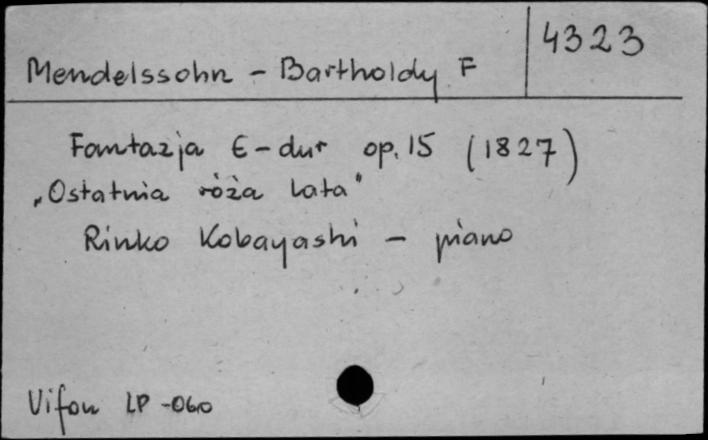 Mendelssohn - Bartholdy F
4323
Fantazja E-dur op. 15 (1827)
„Ostatnia róża lata"
Rinko Kobayashi - piano
Vifon LP-060